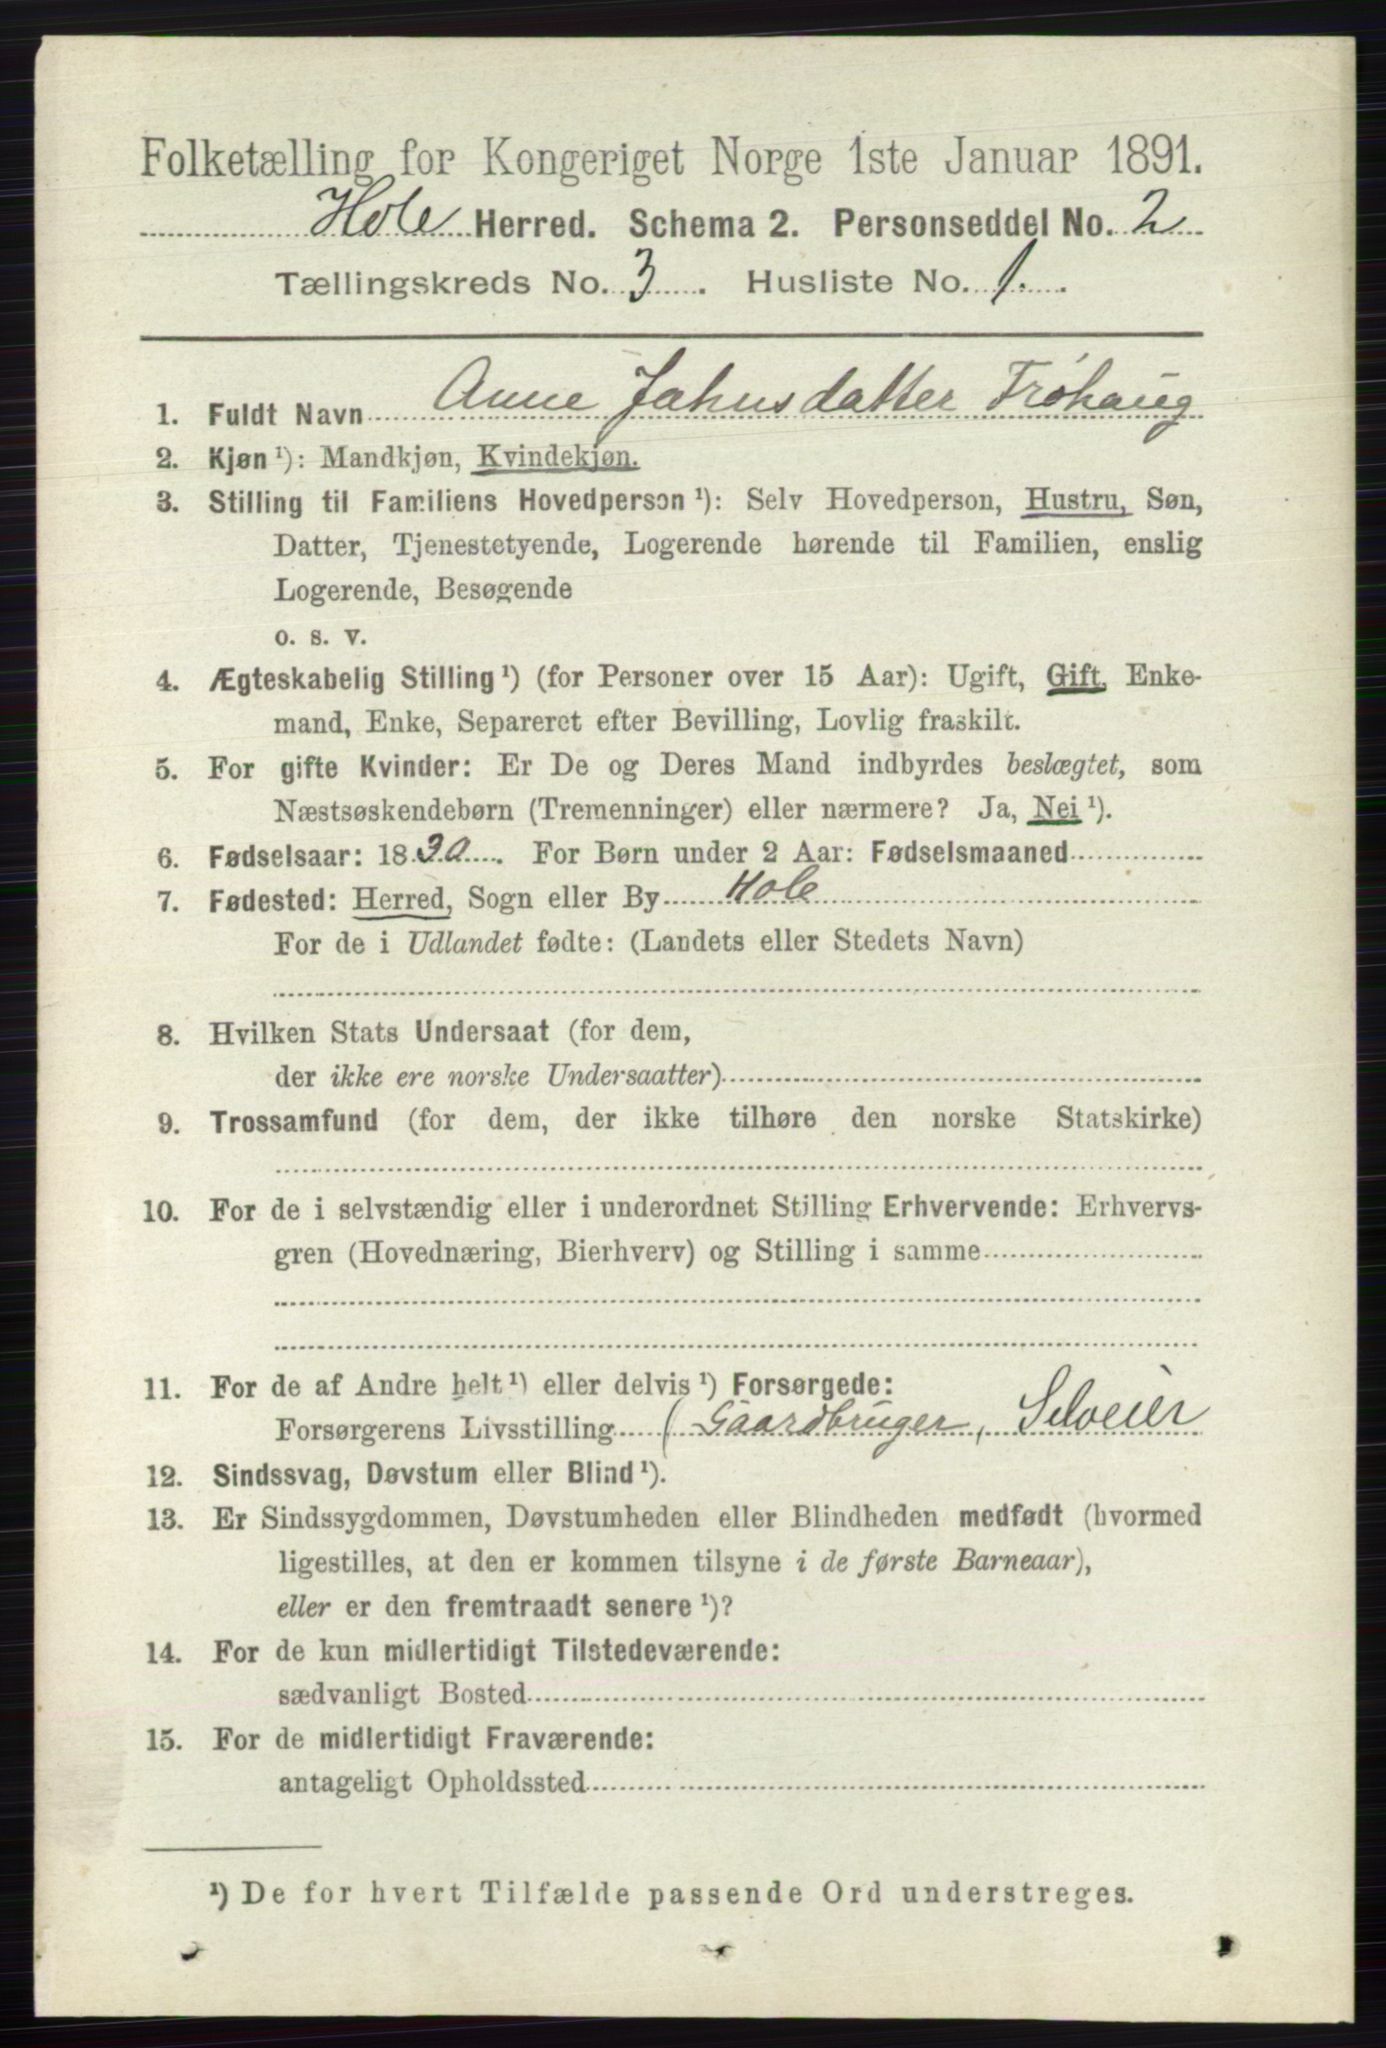 Folketælling for Kongeriget Norge 1ste Januar 1891.
Hole Herred. Schema 2. Personseddel No. 2
Tællingskreds No. 3. Husliste No. 1.
1. Fuldt Navn Anne Jahnsdatter Frøhaug
2. Kjøn ¹): Mandkjøn, Kvindekjøn.
3. Stilling til Familiens Hovedperson ¹): Selv Hovedperson, Hustru, Søn,
Datter, Tjenestetyende, Logerende hørende til Familien, enslig
Logerende, Besøgende
o. s. v.
4. Ægteskabelig Stilling ¹) (for Personer over 15 Aar): Ugift, Gift, Enke-
mand, Enke, Separeret efter Bevilling, Lovlig fraskilt.
5. For gifte Kvinder: Er De og Deres Mand indbyrdes beslægtet, som
Næstsøskendebørn (Tremenninger) eller nærmere? Ja, Nei ¹).
6. Fødselsaar: 1830. For Børn under 2 Aar: Fødselsmaaned
7. Fødested: Herred, Sogn eller By Hole
For de i Udlandet fødte: (Landets eller Stedets Navn)
8. Hvilken Stats Undersaat (for dem,
der ikke ere norske Undersaatter)
9. Trossamfund (for dem, der ikke tilhøre den norske Statskirke)
10. For de i selvstændig eller i underordnet Stilling Erhvervende: Erhvervs-
gren (Hovednæring, Bierhverv) og Stilling i samme
11. For de af Andre helt ¹) eller delvis ¹) Forsørgede:
Forsørgerens Livsstilling (Gaardbruger, Selveier
12. Sindssvag, Døvstum eller Blind ¹).
13. Er Sindssygdommen, Døvstumheden eller Blindheden medfødt (hvormed
ligestilles, at den er kommen tilsyne i de første Barneaar),
eller er den fremtraadt senere ¹)?
14. For de kun midlertidigt Tilstedeværende:
sædvanligt Bosted
15. For de midlertidigt Fraværende:
antageligt Opholdssted
¹) De for hvert Tilfælde passende Ord understreges.